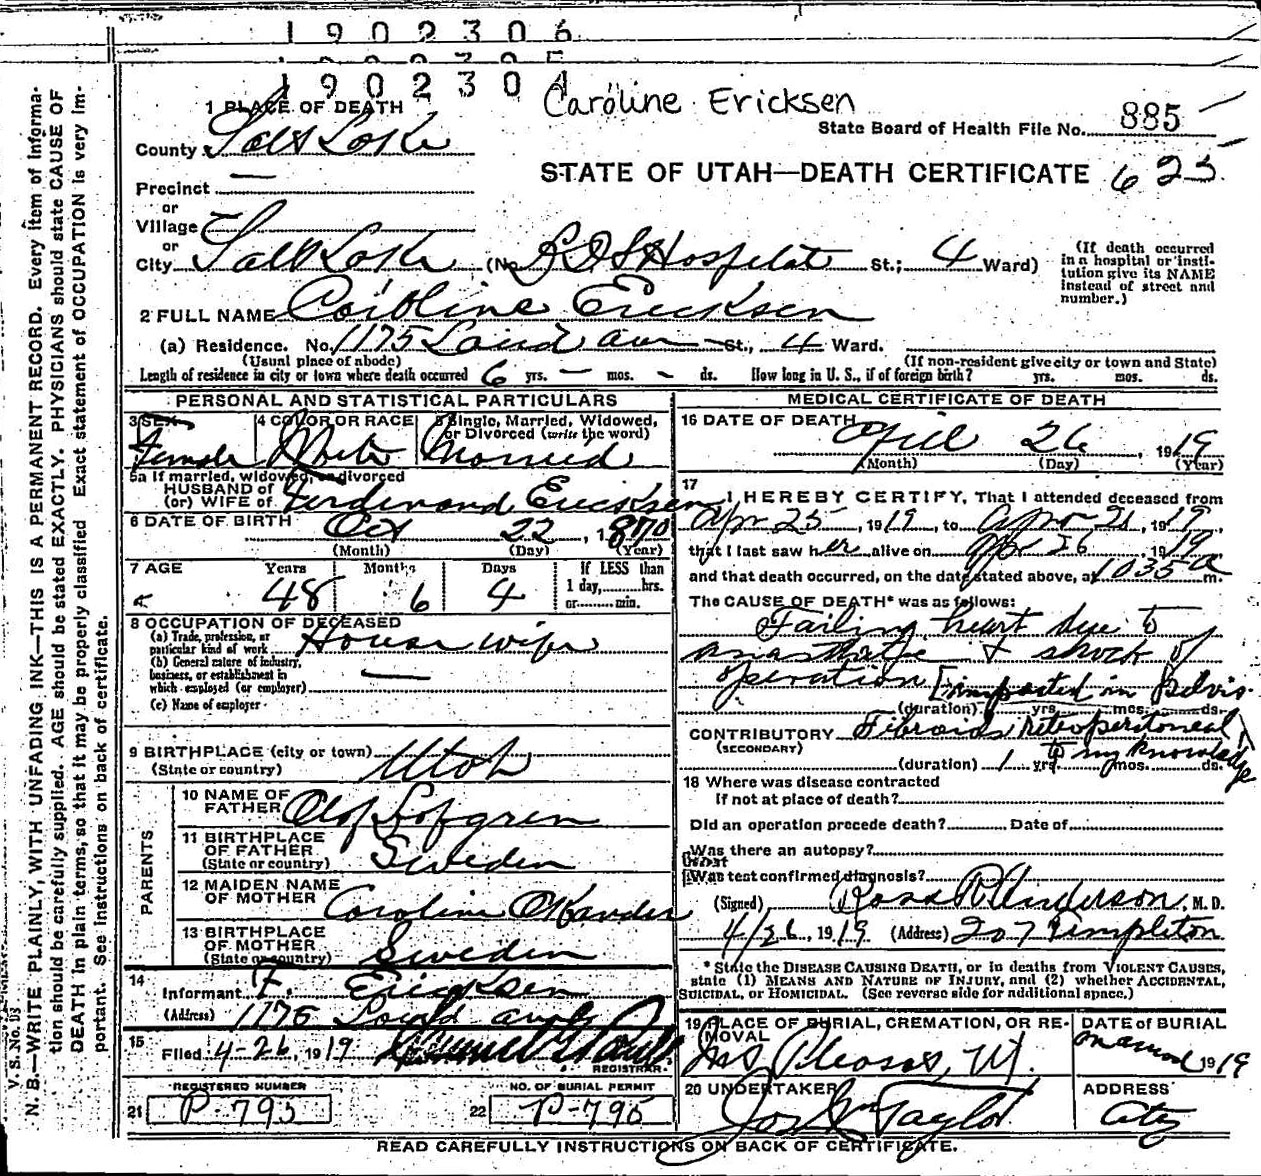 1902306
1902304
Caroline Ericksen
1 PLACE OF DEATH
State Board of Health File No. 885
County Salt Lake
STATE OF UTAH—DEATH CERTIFICATE 625
Precinct —
or
Village
or
City Salt Lake (No. L D S Hospital St.; 4 Ward)
(If death occurred in a hospital or institution give its NAME instead of street and number.)
2 FULL NAME Caroline Ericksen
(a) Residence. No. 1175 Laird ave St., 4 Ward.
(Usual place of abode) (If non-resident give city or town and State)
Length of residence in city or town where death occurred 6 yrs. — mos. - ds. How long in U. S., if of foreign birth? yrs. mos. ds.
PERSONAL AND STATISTICAL PARTICULARS
3 SEX Female
4 COLOR OR RACE White
5 Single, Married, Widowed, or Divorced (write the word) Married
5a If married, widowed, or divorced
HUSBAND of
(or) WIFE of Ferdinand Ericksen
6 DATE OF BIRTH Oct 22, 1870
(Month) (Day) (Year)
7 AGE Years 48 Months 6 Days 4 If LESS than 1 day, hrs. or min.
8 OCCUPATION OF DECEASED
(a) Trade, profession, or particular kind of work Housewife
(b) General nature of industry, business, or establishment in which employed (or employer) —
(c) Name of employer
9 BIRTHPLACE (city or town) Utah
(State or country)
PARENTS
10 NAME OF FATHER Olof Lofgren
11 BIRTHPLACE OF FATHER Sweden
(State or country)
12 MAIDEN NAME OF MOTHER Caroline
13 BIRTHPLACE OF MOTHER Sweden
(State or country)
14 Informant F. Ericksen
(Address) 1175 Laird ave
15 Filed 4-26, 1919
REGISTRAR.
REGISTERED NUMBER
21 P-795
NO. OF BURIAL PERMIT
22 P-795
MEDICAL CERTIFICATE OF DEATH
16 DATE OF DEATH April 26, 1919
(Month) (Day) (Year)
17 I HEREBY CERTIFY, That I attended deceased from
Apr 25, 1919, to Apr 26, 1919,
that I last saw her alive on Apr 26 1919
and that death occurred, on the date stated above, at 1035 a m.
The CAUSE OF DEATH* was as follows:
Failing heart due to
anasthetic & shock of
operation [impacted in pelvis.
(duration) yrs. mos. ds.
CONTRIBUTORY Fibroids retroperitoneal
(SECONDARY) To my knowledge
(duration) 1 yrs. mos. ds.
18 Where was disease contracted
If not at place of death?
Did an operation precede death? Date of
Was there an autopsy?
What
Was test confirmed diagnosis?
(Signed) Ross Anderson, M. D.
4/26, 1919 (Address) 207 Templeton
* State the DISEASE CAUSING DEATH, or in deaths from VIOLENT CAUSES,
state (1) MEANS AND NATURE OF INJURY, and (2) whether ACCIDENTAL,
SUICIDAL, or HOMICIDAL. (See reverse side for additional space.)
19 PLACE OF BURIAL, CREMATION, OR REMOVAL
Mt Pleasant, Ut.
DATE of BURIAL
1919
20 UNDERTAKER
Jos Wm Taylor
ADDRESS
City
READ CAREFULLY INSTRUCTIONS ON BACK OF CERTIFICATE.
V. S. No.
N. B.—WRITE PLAINLY, WITH UNFADING INK—THIS IS A PERMANENT RECORD. Every item of informa-
tion should be carefully supplied. AGE should be stated EXACTLY. PHYSICIANS should state CAUSE OF
DEATH in plain terms, so that it may be properly classified. Exact statement of OCCUPATION is very im-
portant. See instructions on back of certificate.